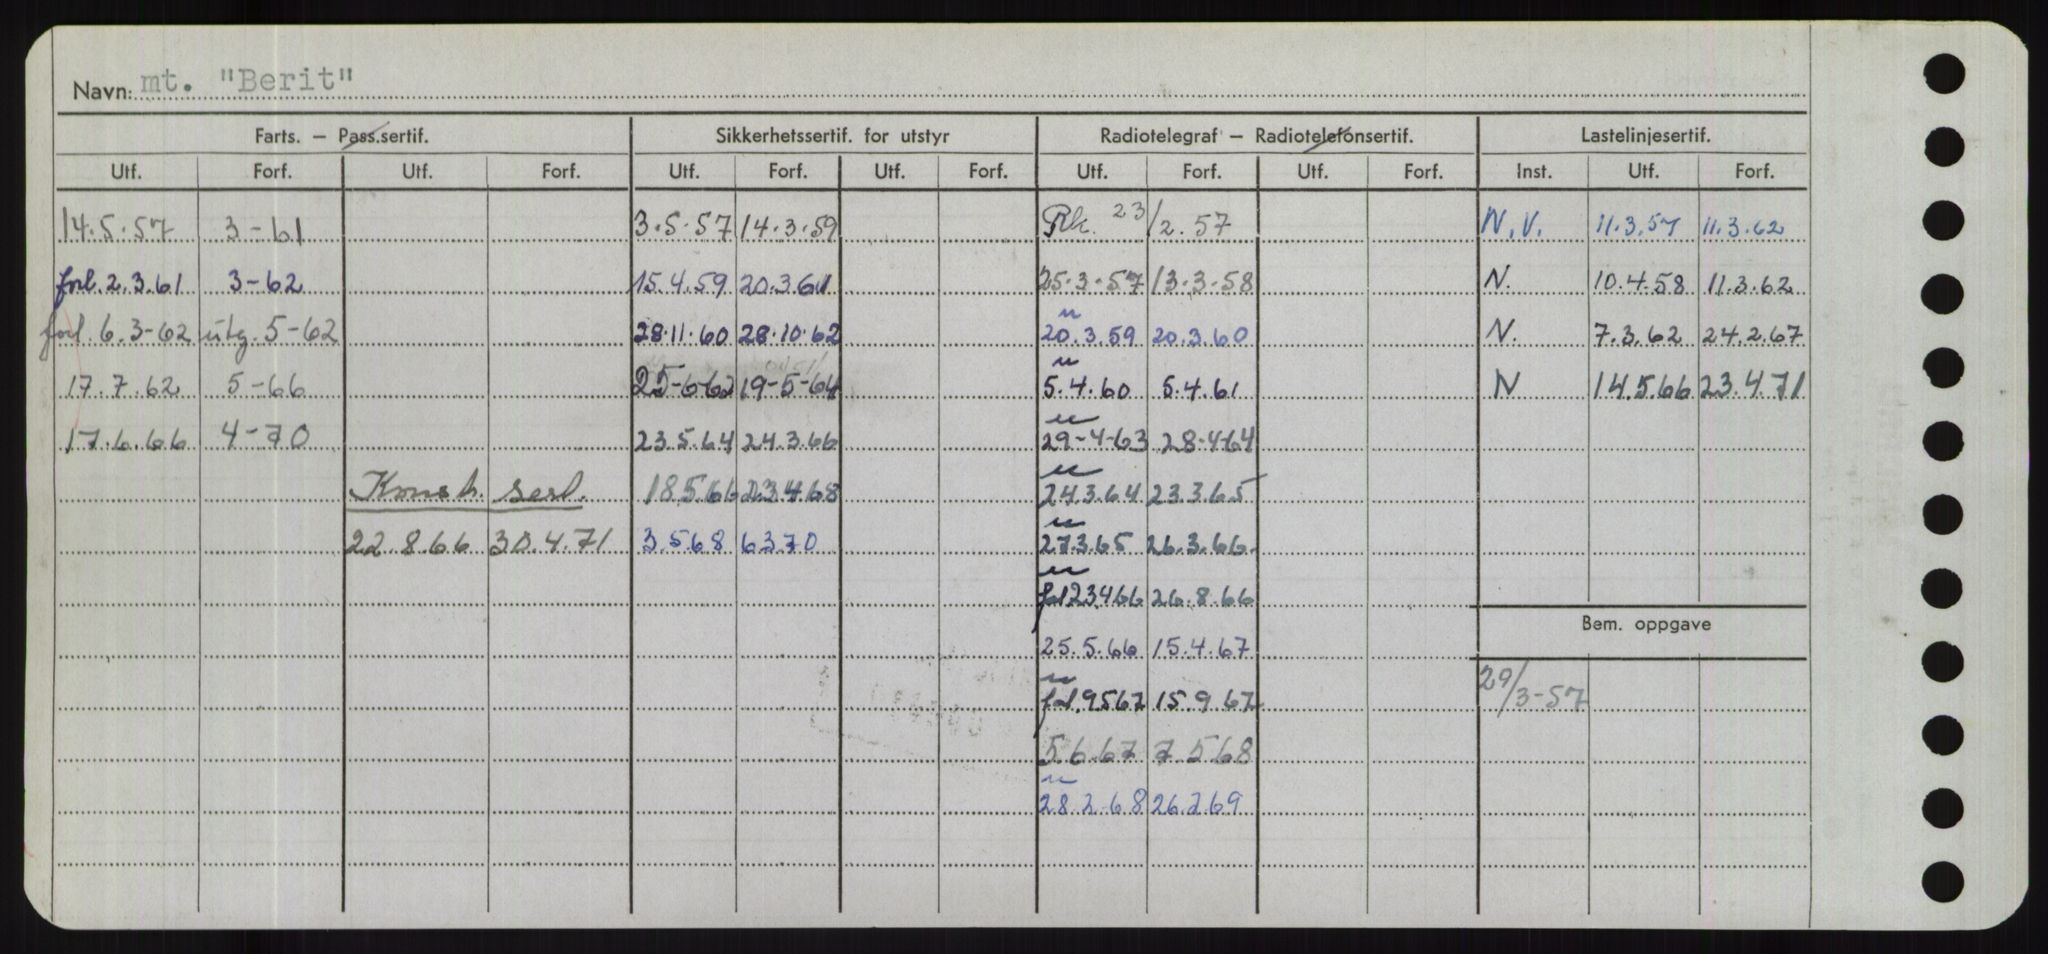 Navn: mt. "Berit"
Farts. – Pass.sertif. Sikkerhetssertif. for utstyr Radiotelegraf – Radiotelefonsertif. Lastelinjesertif.
Utf. Forf. Utf. Forf. Utf. Forf. Utf. Forf. Utf. Forf. Utf. Forf. Inst. Utf. Forf.
14.5.57 3-61 3.5.57 14.3.59 Rk. 23/2.57 N.V. 11.3.57 11.3.62
forl. 2.3.61 3-62 15.4.59 20.3.61 25.3.57 13.3.58 N. 10.4.58 11.3.62
forl. 6.3-62 utg. 5-62 28.11.60 28.10.62 20.3.59 20.3.60 N. 7.3.62 24.2.67
17.7.62 5-66 25-6-62 19-5-64 5.4.60 5.4.61 N 14.5.66 23.4.71
17.6.66 4-70 23.5.64 24.3.66 29-4-63 28-4-64
Konstr. sert. 18.5.66 23.4.68 24.3.64 23.3.65
22.8.66 30.4.71 3.5.68 6.3.70 27.3.65 26.3.66.
23.4.66 26.8.66
Bem. oppgave
25.5.66 15.4.67
9.5.67 15.9.67 29/3-57
5.6.67 7.5.68
28.2.68 26.2.69